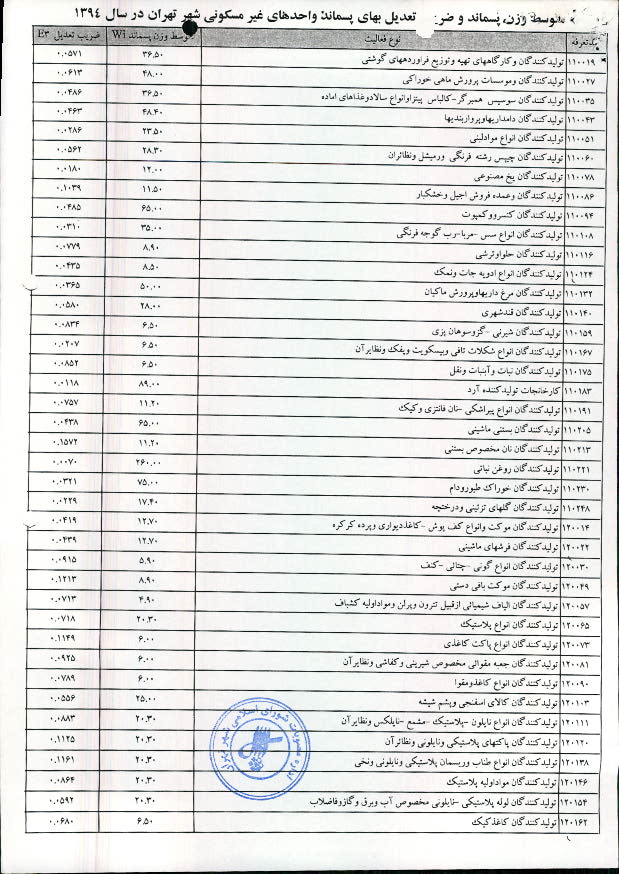 متوسط وزن پسماند و ضر تعدیل بهای پسماند واحدهای غیر مسکونی شهر تهران در سال ۱۳۹۴
کدتعرفه نوع فعالیت متوسط وزن پسماند Wi ضریب تعدیل E۳
۱۱۰۰۱۹ تولیدکنندگان وکارگاههای تهیه وتوزیع فراوردههای گوشتی ۳۶.۵۰ ۰.۰۵۷۱
۱۱۰۰۲۷ تولیدکنندگان وموسسات پرورش ماهی خوراکی ۴۸.۰۰ ۰.۰۶۱۳
۱۱۰۰۳۵ تولیدکنندگان سوسیس همبرگر-کالباس پیتزاوانواع سالادوغذاهای اماده ۳۶.۵۰ ۰.۰۴۸۶
۱۱۰۰۴۳ تولیدکنندگان دامداریهاوپرواربندیها ۴۸.۴۰ ۰.۰۴۶۳
۱۱۰۰۵۱ تولیدکنندگان انواع موادلبنی ۲۳.۵۰ ۰.۰۲۸۶
۱۱۰۰۶۰ تولیدکنندگان چیپس رشته فرنگی ورمیشل ونظائران ۲۸.۳۰ ۰.۰۵۶۲
۱۱۰۰۷۸ تولیدکنندگان یخ مصنوعی ۱۲.۰۰ ۰.۰۱۸۰
۱۱۰۰۸۶ تولیدکنندگان وعمده فروش اجیل وخشکبار ۱۱.۵۰ ۰.۱۰۳۹
۱۱۰۰۹۴ تولیدکنندگان کنسرووکمپوت ۶۵.۰۰ ۰.۰۴۸۵
۱۱۰۱۰۸ تولیدکنندگان انواع سس -مربا-رب گوجه فرنگی ۳۵.۰۰ ۰.۰۳۱۰
۱۱۰۱۱۶ تولیدکنندگان حلواوترشی ۸.۹۰ ۰.۰۷۷۹
۱۱۰۱۲۴ تولیدکنندگان انواع ادویه جات ونمک ۸.۵۰ ۰.۰۴۳۵
۱۱۰۱۳۲ تولیدکنندگان مرغ داریهاوپرورش ماکیان ۵۰.۰۰ ۰.۰۳۶۵
۱۱۰۱۴۰ تولیدکنندگان قندشهری ۲۸.۰۰ ۰.۰۵۸۰
۱۱۰۱۵۹ تولیدکنندگان شیرنی -گزوسوهان پزی ۶.۵۰ ۰.۰۸۳۴
۱۱۰۱۶۷ تولیدکنندگان انواع شکلات تافی وبیسکویت وپفک ونظایرآن ۶.۵۰ ۰.۰۲۰۷
۱۱۰۱۷۵ تولیدکنندگان نبات وآبنبات ونقل ۶.۵۰ ۰.۰۸۵۲
۱۱۰۱۸۳ کارخانجات تولیدکننده آرد ۸۹.۰۰ ۰.۰۱۱۸
۱۱۰۱۹۱ تولیدکنندگان انواع پیراشکی -نان فانتزی وکیک ۱۱.۲۰ ۰.۰۷۵۷
۱۱۰۲۰۵ تولیدکنندگان بستنی ماشینی ۶۵.۰۰ ۰.۰۴۳۸
۱۱۰۲۱۳ تولیدکنندگان نان مخصوص بستنی ۱۱.۲۰ ۰.۱۵۷۲
۱۱۰۲۲۱ تولیدکنندگان روغن نباتی ۲۶۰.۰۰ ۰.۰۰۷۰
۱۱۰۲۳۰ تولیدکنندگان خوراک طیورودام ۷۵.۰۰ ۰.۰۳۲۱
۱۱۰۲۴۸ تولیدکنندگان گلهای تزئینی ودرختچه ۱۷.۴۰ ۰.۰۲۲۹
۱۲۰۰۱۴ تولیدکنندگان موکت وانواع کف پوش -کاغذدیواری وپرده کرکره ۱۲.۷۰ ۰.۰۴۱۹
۱۲۰۰۲۲ تولیدکنندگان فرشهای ماشینی ۱۲.۷۰ ۰.۰۴۳۹
۱۲۰۰۳۰ تولیدکنندگان انواع گونی -چتائی -کنف ۵.۹۰ ۰.۰۹۱۵
۱۲۰۰۴۹ تولیدکنندگان موکت بافی دستی ۸.۹۰ ۰.۱۲۱۳
۱۲۰۰۵۷ تولیدکنندگان الیاف شیمیائی ازقبیل تترون وپرلن ومواداولیه کشباف ۴.۹۰ ۰.۰۷۱۳
۱۲۰۰۶۵ تولیدکنندگان انواع پلاستیک ۲۰.۳۰ ۰.۰۷۱۸
۱۲۰۰۷۳ تولیدکنندگان انواع پاکت کاغذی ۶.۰۰ ۰.۱۱۴۹
۱۲۰۰۸۱ تولیدکنندگان جعبه مقوائی مخصوص شیرینی وکفاشی ونظایرآن ۶.۰۰ ۰.۰۹۲۵
۱۲۰۰۹۰ تولیدکنندگان انواع کاغذومقوا ۶.۰۰ ۰.۰۷۸۹
۱۲۰۱۰۳ تولیدکنندگان کالای اسفنجی وپشم شیشه ۲۵.۰۰ ۰.۰۵۵۶
۱۲۰۱۱۱ تولیدکنندگان انواع نایلون -پلاستیک -مشمع -نایلکس ونظایرآن ۲۰.۳۰ ۰.۰۸۸۳
۱۲۰۱۲۰ تولیدکنندگان پاکتهای پلاستیکی ونایلونی ونظائرآن ۲۰.۳۰ ۰.۱۱۲۵
۱۲۰۱۳۸ تولیدکنندگان انواع طناب وریسمان پلاستیکی ونایلونی ونخی ۲۰.۳۰ ۰.۱۱۶۱
۱۲۰۱۴۶ تولیدکنندگان مواداولیه پلاستیک ۲۰.۳۰ ۰.۰۸۶۴
۱۲۰۱۵۴ تولیدکنندگان لوله پلاستیکی -نایلونی مخصوص آب وبرق وگازوفاضلاب ۲۰.۳۰ ۰.۰۵۹۲
۱۲۰۱۶۲ تولیدکنندگان کاغذکپیک ۶.۵۰ ۰.۰۶۸۰
اداره مصوبات شورای اسلامی شهر تهران